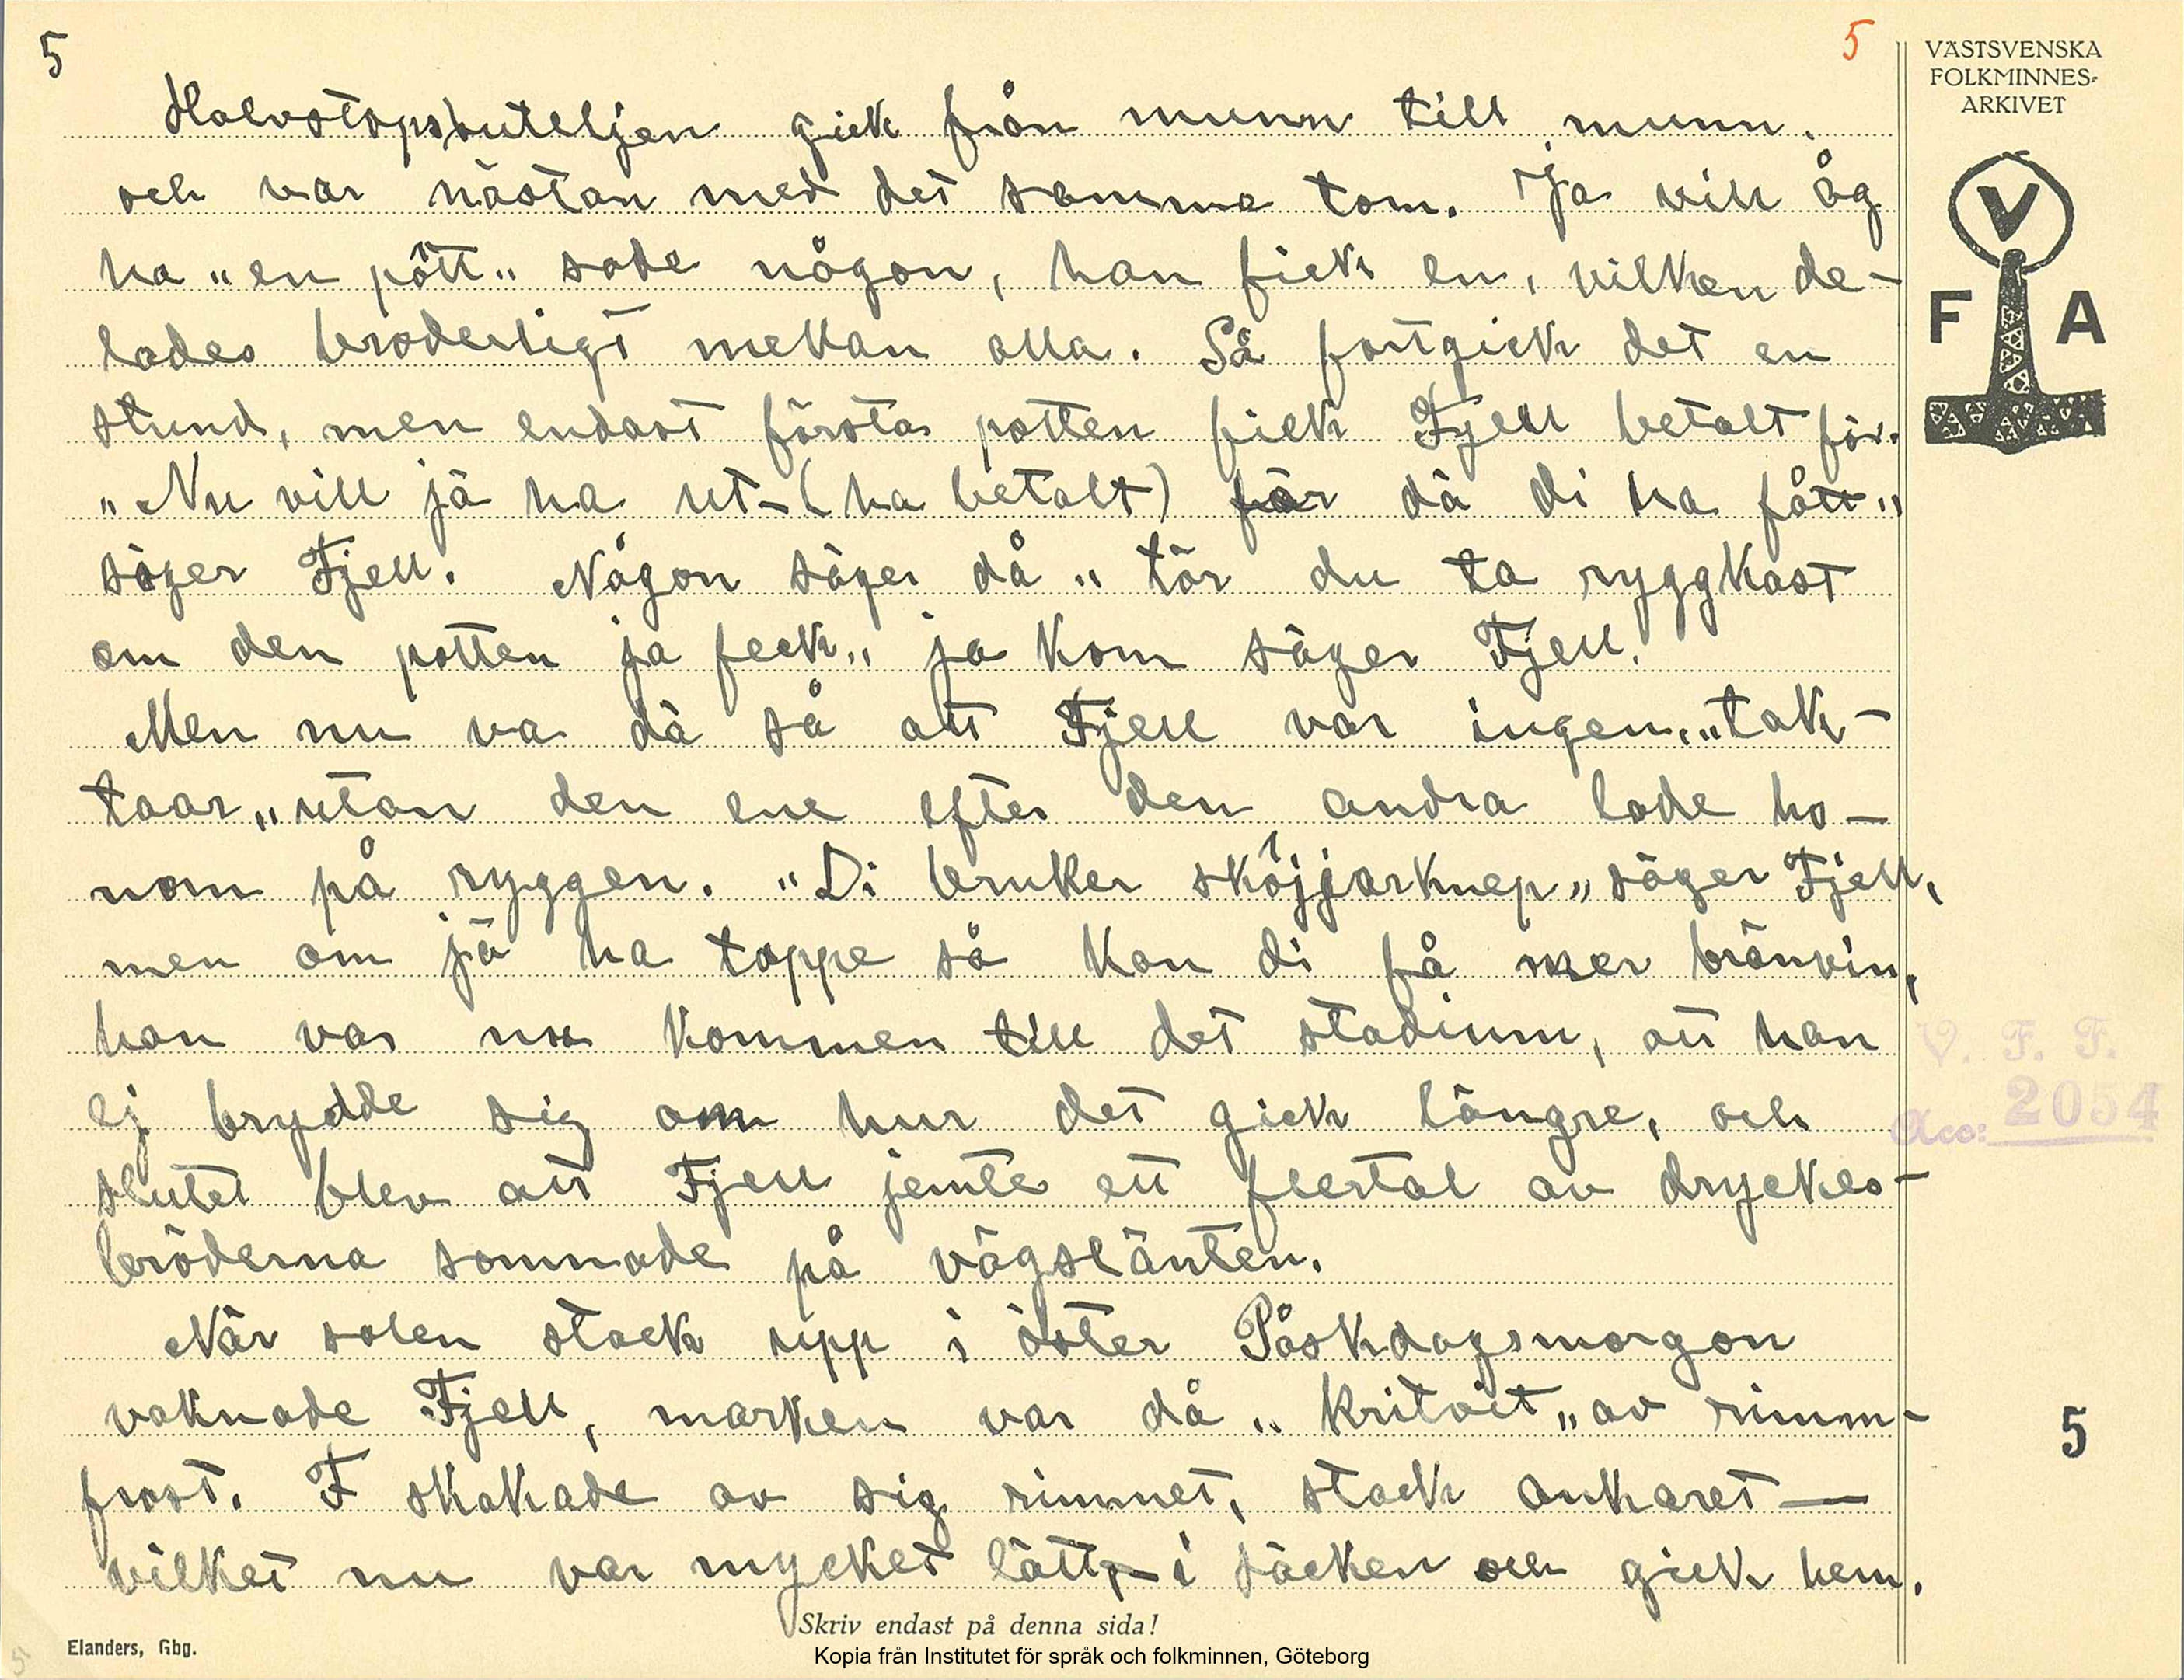 5
5
VÄSTSVENSKA
FOLKMINNES-
ARKIVET
V
F A
Halvstopsbuteljen gick från munn till munn.
och var nästan med det samma tom. Ja vill åg
ha "en pött" sade någon, han fick en, vilken de-
lades broderligt mellan alla. Så fortgick det en
stund, men endast första potten fick Fjell betalt för.
"Nu vill jä ha ut-(ha betalt) för dä di ha fått"
säger Fjell. Någon säger då "tör du ta ryggkast
om den potten ja feck" ja kom säger Fjell.
Men nu va dä så att Fjell var ingen "tak-
taar" utan den ene efter den andra lade ho-
nom på ryggen. "Di bruker sköjjarknep" säger Fjell,
men om jä ha tappe så kan di få mer bränvin,
han var nu kommen till det stadium, att han
ej brydde sig om hur det gick längre, och
slutet blev att Fjell jemte ett flertal av dryckes-
bröderna somnade på vägslänten.
När solen stack upp i öster Påskdagsmorgon
vaknade Fjell, marken var då "kritvit" av rimm-
frost. F skakade av sig rimmet, stack ankaret —
vilket nu var mycket lätt, — i säcken och gick hem.
V. F. F.
Acc: 2054
5
Skriv endast på denna sida!
Elanders, Gbg.
5
Kopia från Institutet för språk och folkminnen, Göteborg